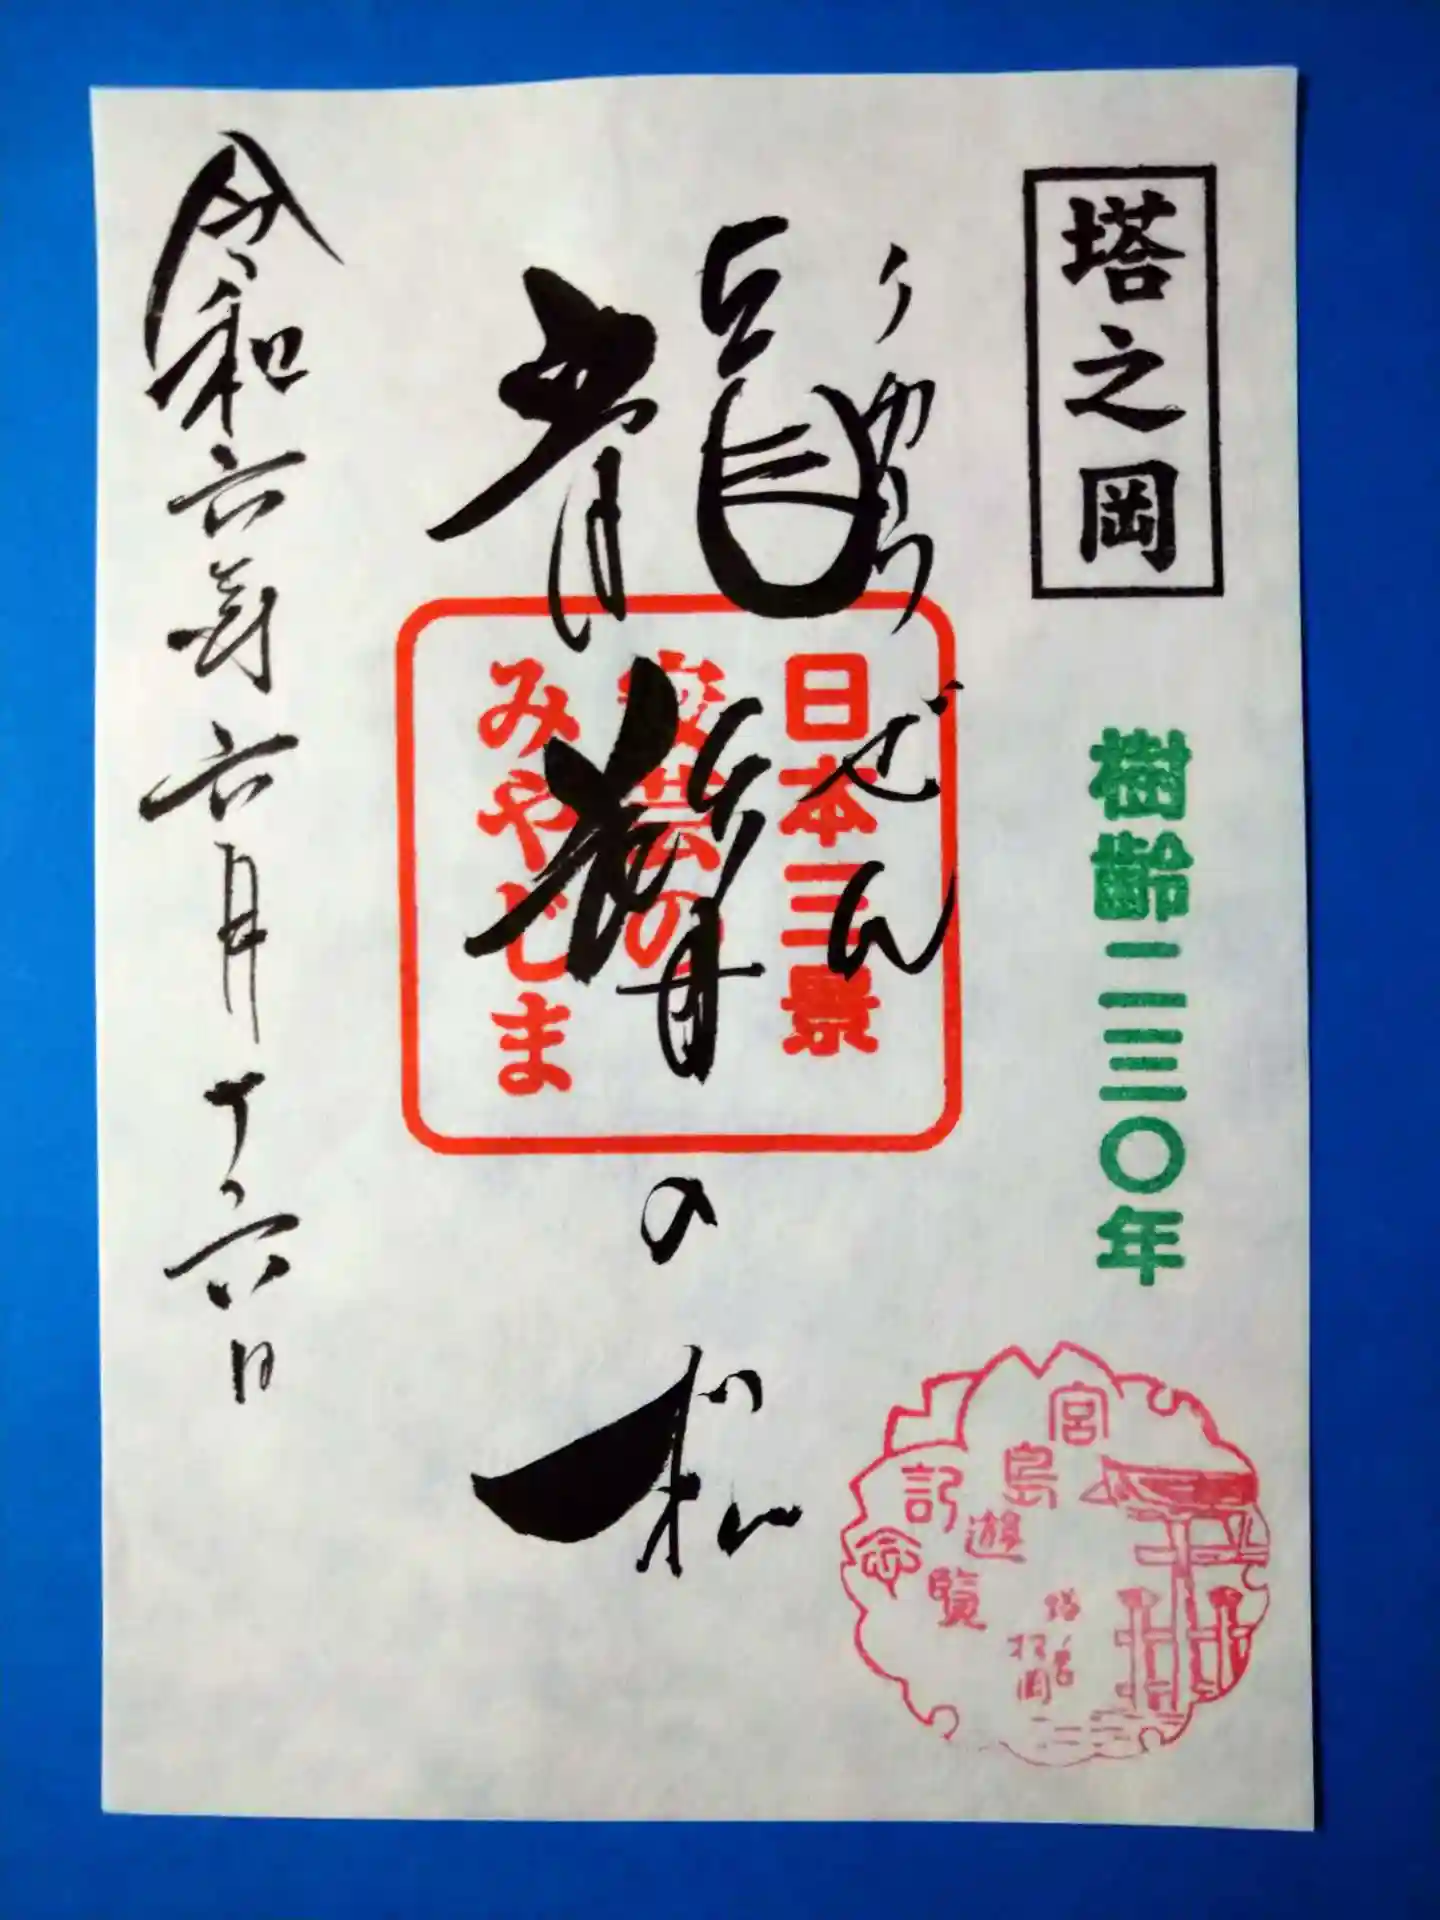 塔之岡
樹齢二三〇年
りゅうぜん
龍髯の松
日本三景
安芸の
みやじま
令和六年六月十六日
宮島遊覧
記念